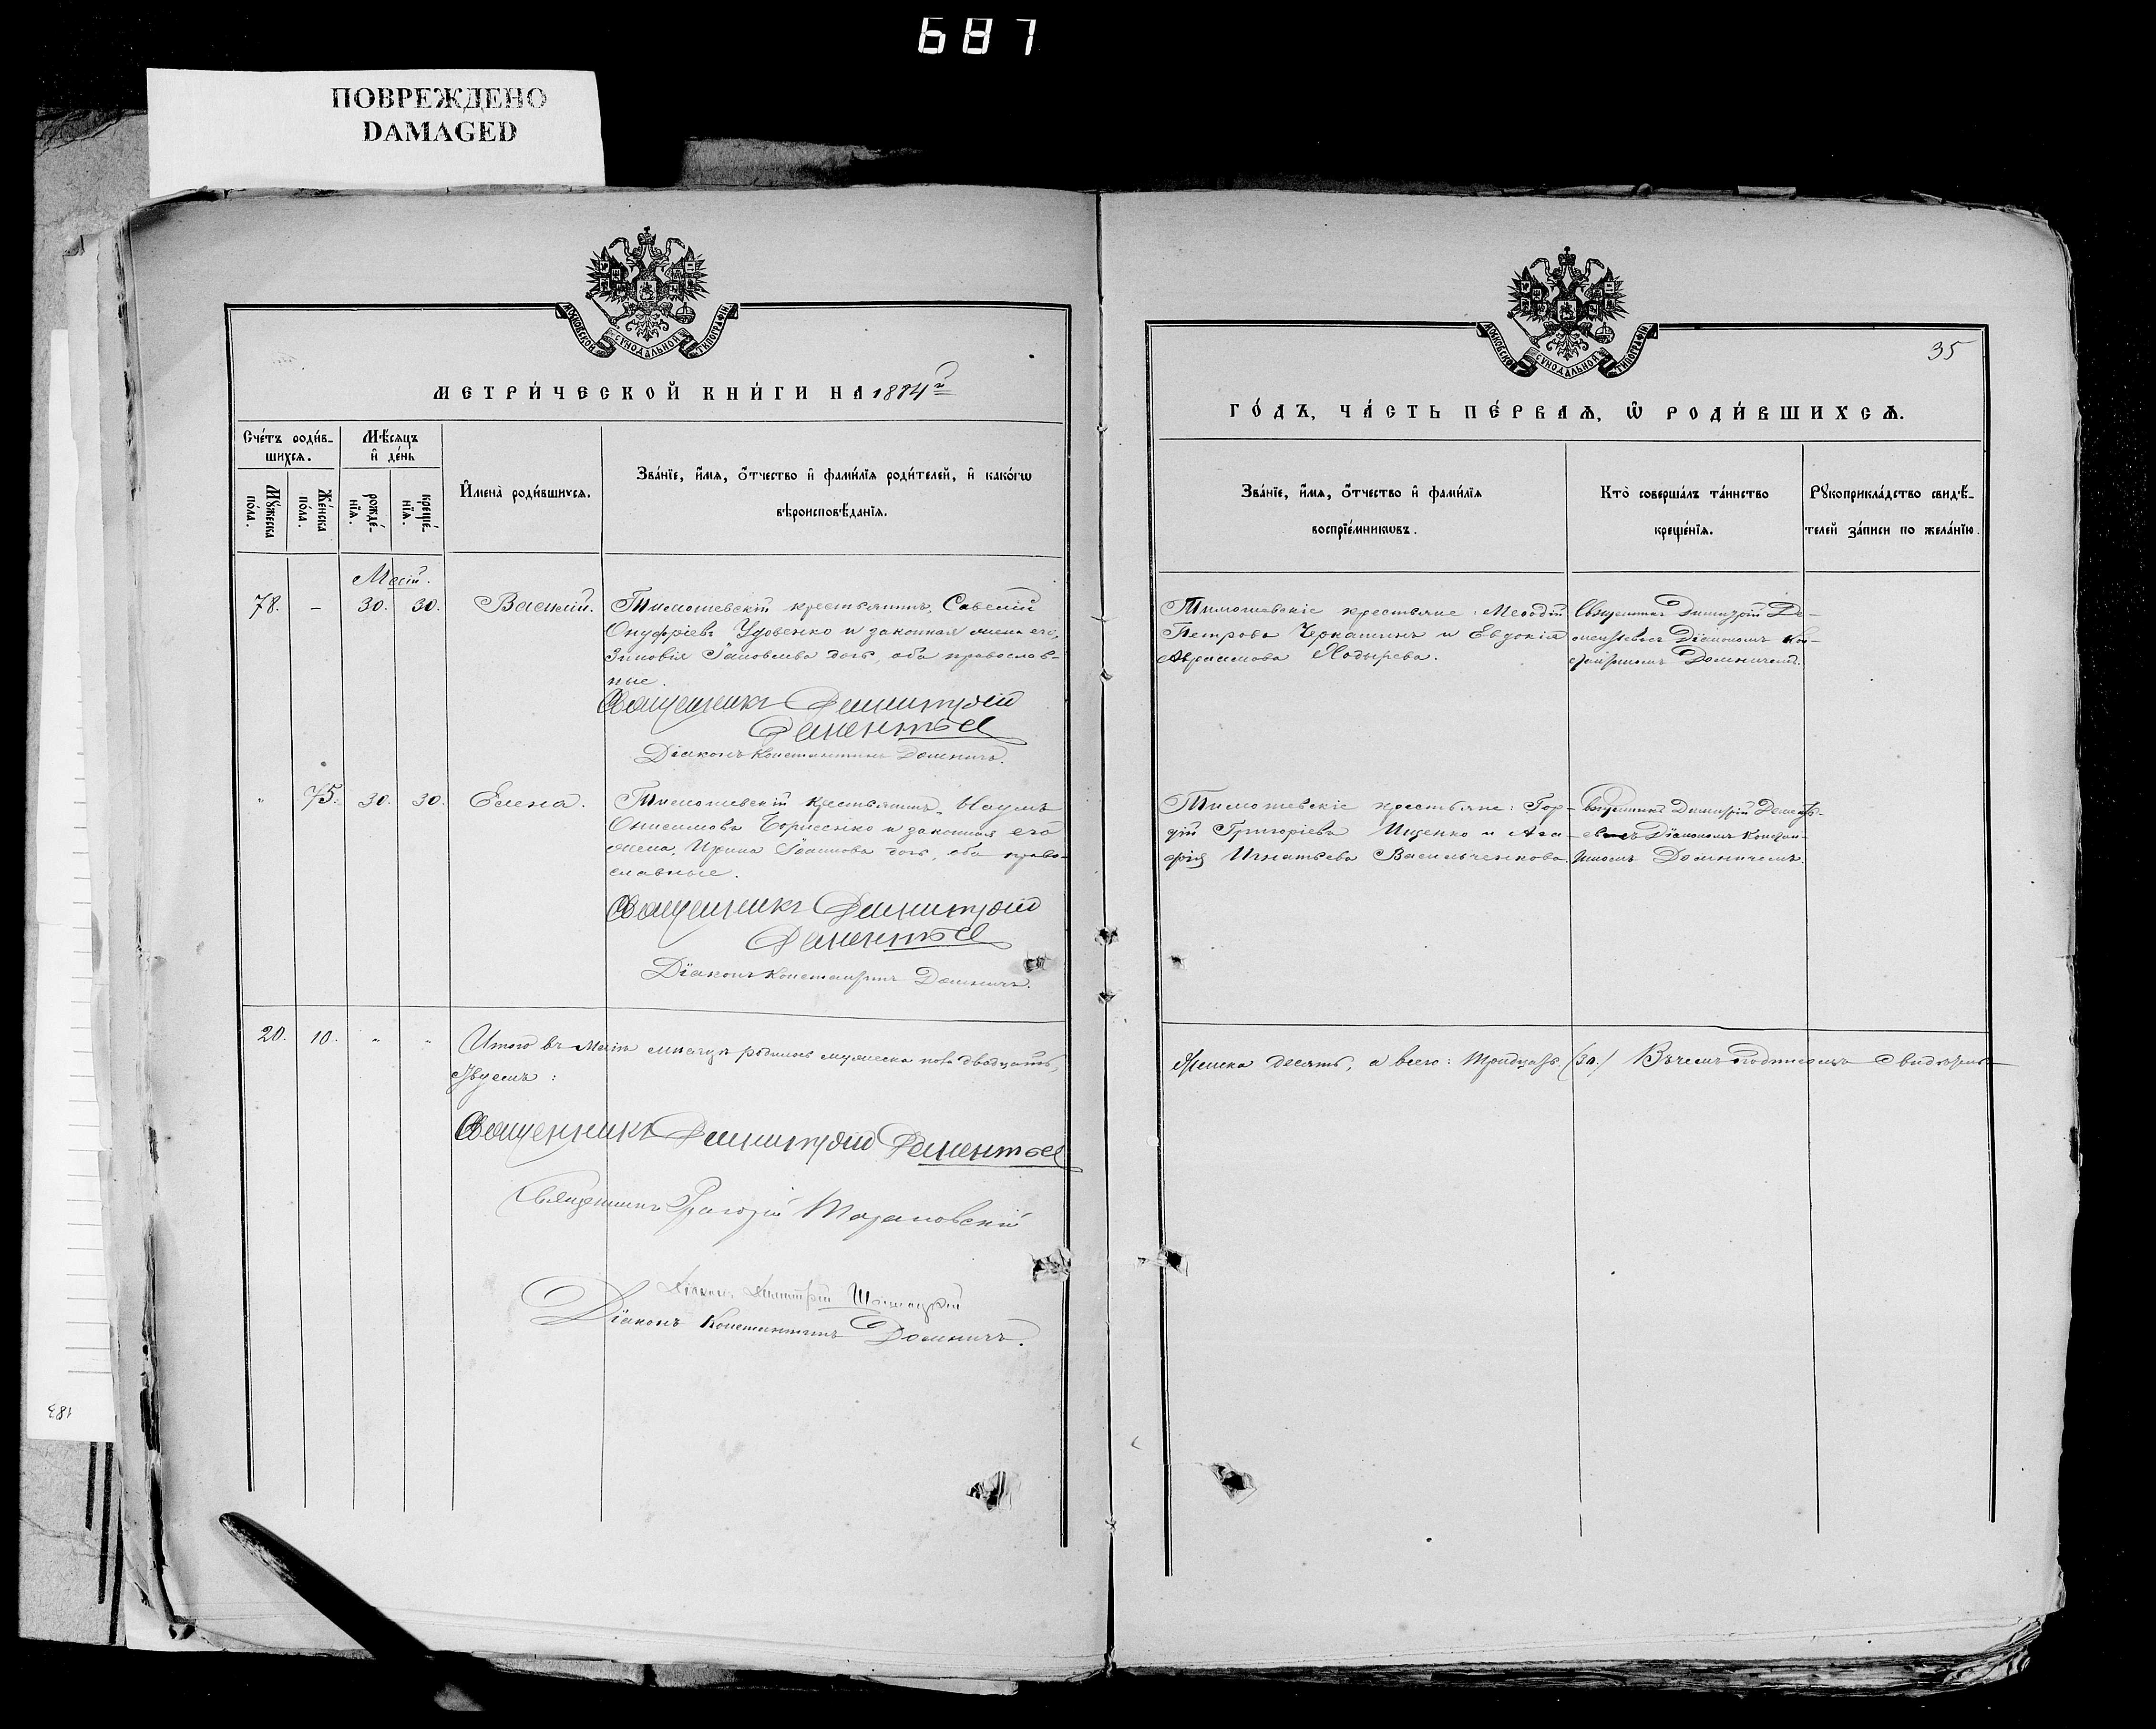 687
ПОВРЕЖДЕНО
DAMAGED
МОСКОВСКОЙ СУНОДАЛЬНОЙ ТИПОГРАФІИ
МЕТРИ́ЧЕСКОЙ КНИ́ГИ НА 1874 г̃
Сче́тъ роди́в-
шихсѧ.
Мѣ́сѧцъ
и҆ де́нь
Мꙋ́жеска
по́ла.
Же́нска
по́ла.
рожде́-
нїѧ.
креще́-
нїѧ.
И҆мена̀ роди́вшихсѧ.
Зва́нїе, и҆́мѧ, ѻ҆́тчество и҆ фамѝлїѧ роди́телей, и҆ како́гѡ
вѣроисповѣ́данїѧ.
Маій.
78. - 30. 30. Василій. Тимошевскій крестьянинъ, Савелій
Онуфріевъ Удовенко и законная жена его,
Зиновія дочь, оба православ-
ные.
Священникъ Димитрій
Дементьев
Діаконъ Константинъ Домничъ.
" 75. 30. 30. Елена. Тимошевскій крестьянинъ, Наумъ
Онисимовъ Борисенко и законная его
жена, Ирина Іоаннова дочь, оба право-
славные.
Священникъ Димитрій
Дементьев
Діаконъ Константинъ Домничъ.
20. 10. " " Итого въ Маіи мѣсяцѣ родилось мужеска пола двадцать,
Священникъ Димитрій Дементьев
Священникъ Григорій
Діаконъ Димитрій
Діаконъ Константинъ Домничъ.
183
МОСКОВСКОЙ СУНОДАЛЬНОЙ ТИПОГРАФІИ
35
ГО́ДЪ, ЧА́СТЬ ПЕ́РВАѦ, Ѡ҆ РОДИ́ВШИХСѦ.
Зва́нїе, и҆́мѧ, ѻ҆́тчество и҆ фамѝлїѧ
воспрїе́мникѡвъ.
Кто̀ соверша́лъ та́инство
креще́нїѧ.
Рꙋкоприкла́дство свидѣ́-
телей за́писи по жела́нїю.
Тимошевскіе крестьяне: Меѳодій
Петровъ Черкашинъ и Евдокія
Авраамова
Священникъ Димитрій Де-
ментьевъ съ Діакономъ Кон-
стантиномъ Домничемъ.
Тимошевскіе крестьяне: Гор-
дій Григоріевъ Ищенко и Ага-
фія Игнатьева Васильченкова.
Священникъ Димитрій Дементь-
евъ съ Діакономъ Констан-
тиномъ Домничемъ.
женска десять, а всего: тридцать (30.) Въ чемъ подписомъ свидѣтель-